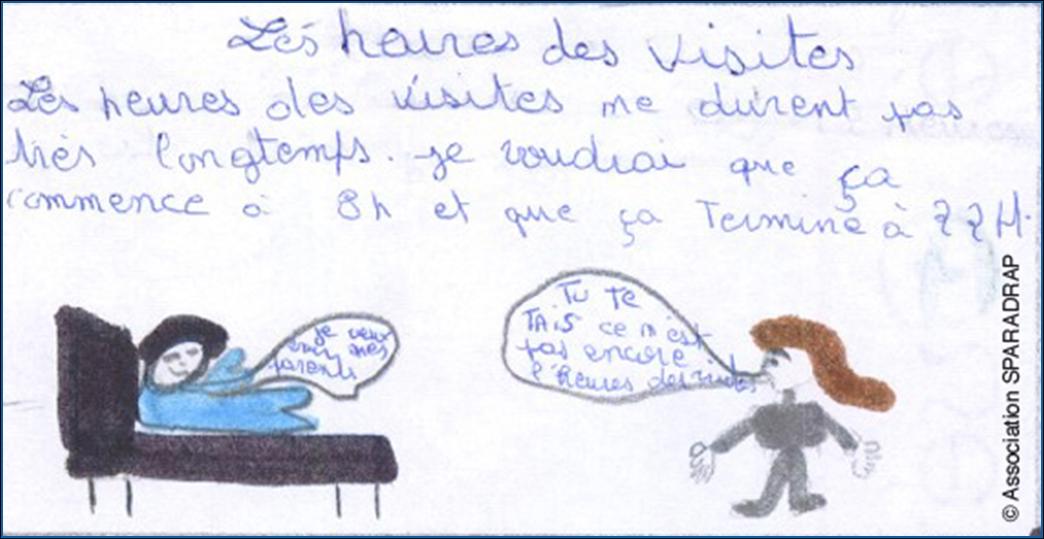 Les heures des visites
Les heures des visites ne durent pas
très longtemps. je voudrai que ça
commence à 8h et que ça Termine à 22H.
je veux
voir mes
parents
Tu Te
TAiS ce n'est
pas encore
l'heures des visites
© Association SPARADRAP